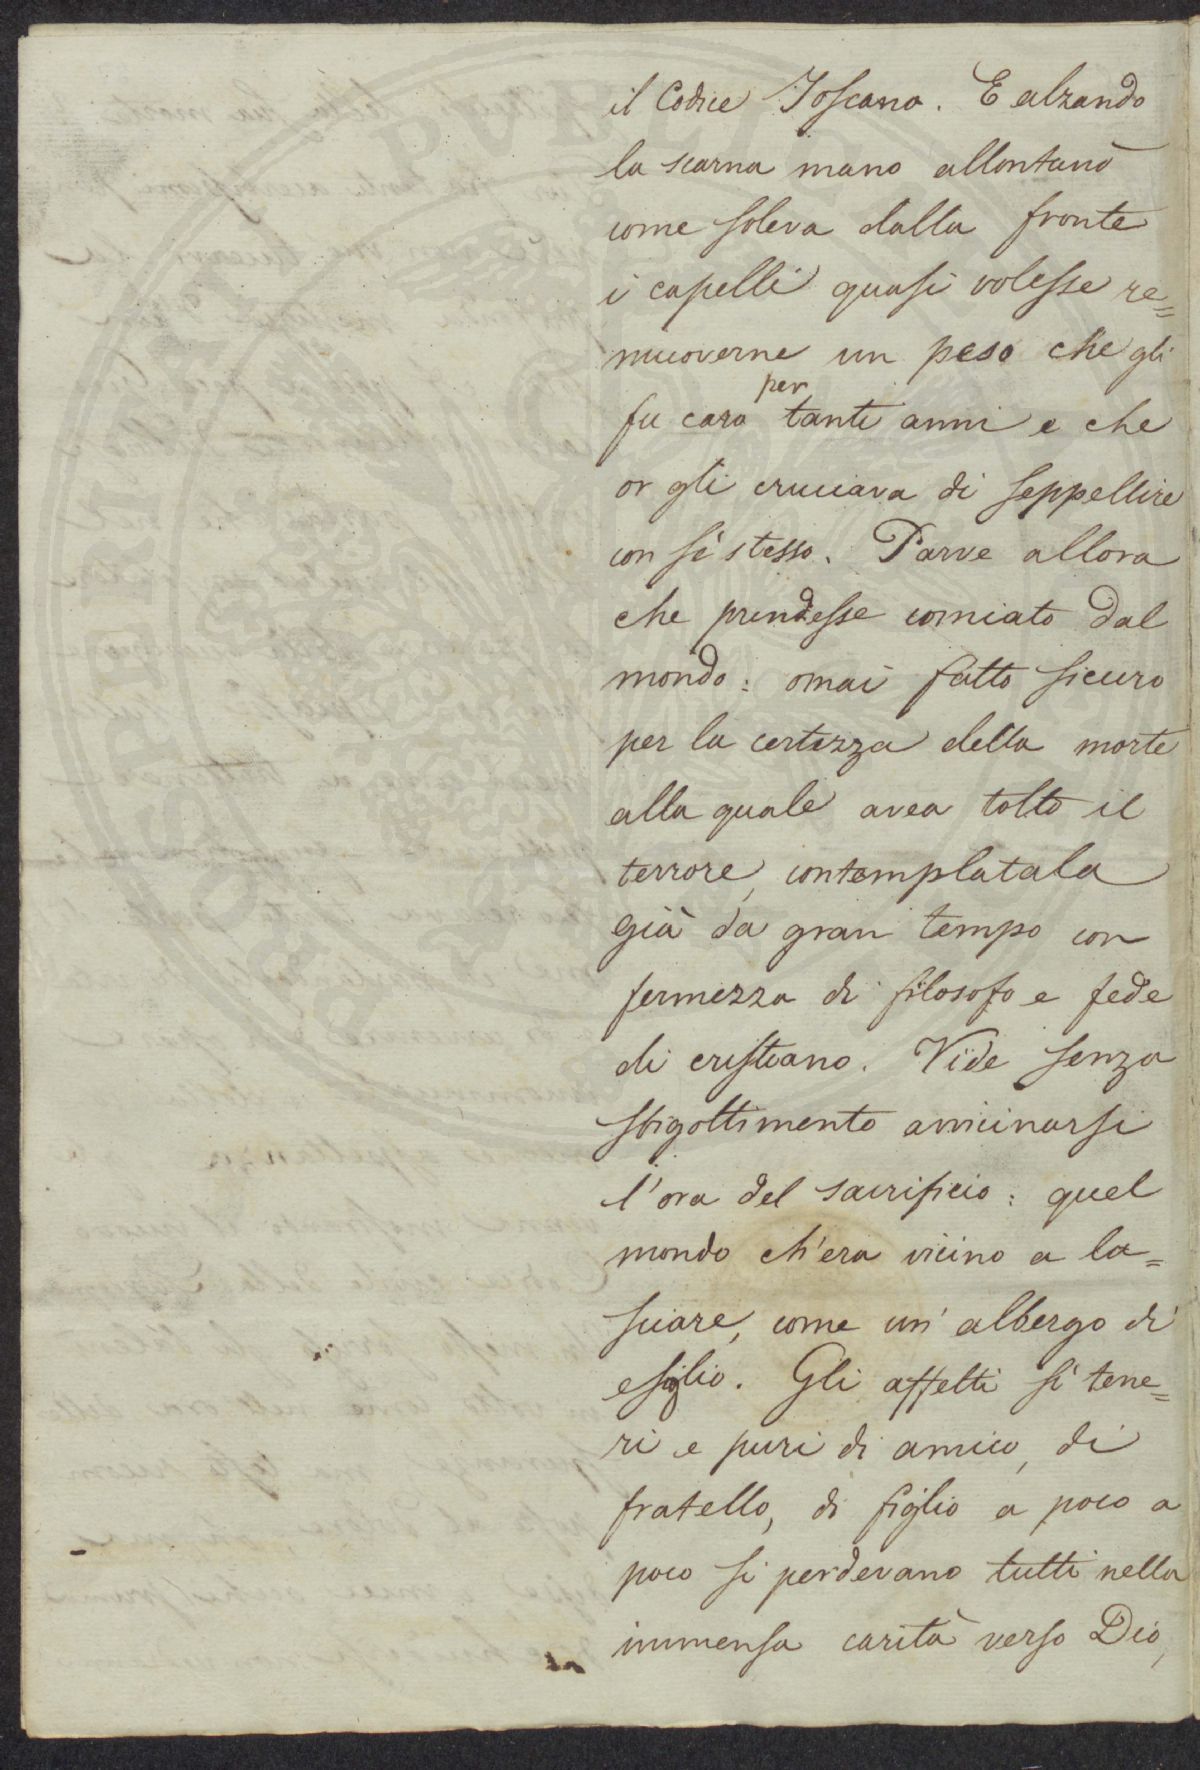 il Codice Toscano. E alzando
la scarna mano allontanò
come soleva dalla fronte
i capelli quasi volesse re=
muoverne un peso che gli
fu caro per tanti anni e che
or gli cruciava di seppellire
con sé stesso. Parve allora
che prendesse comiato dal
mondo: omai fatto sicuro
per la certezza della morte
alla quale avea tolto il
terrore, contemplatala
già da gran tempo con
fermezza di filosofo e fede
di cristiano. Vide senza
sbigottimento avvicinarsi
l'ora del sacrificio: quel
mondo ch'era vicino a la=
sciare, come un' albergo di
esiglio. Gli affetti sì tene=
ri e puri di amico, di
fratello, di figlio a poco a
poco si perdevano tutti nella
immensa carità verso Dio,